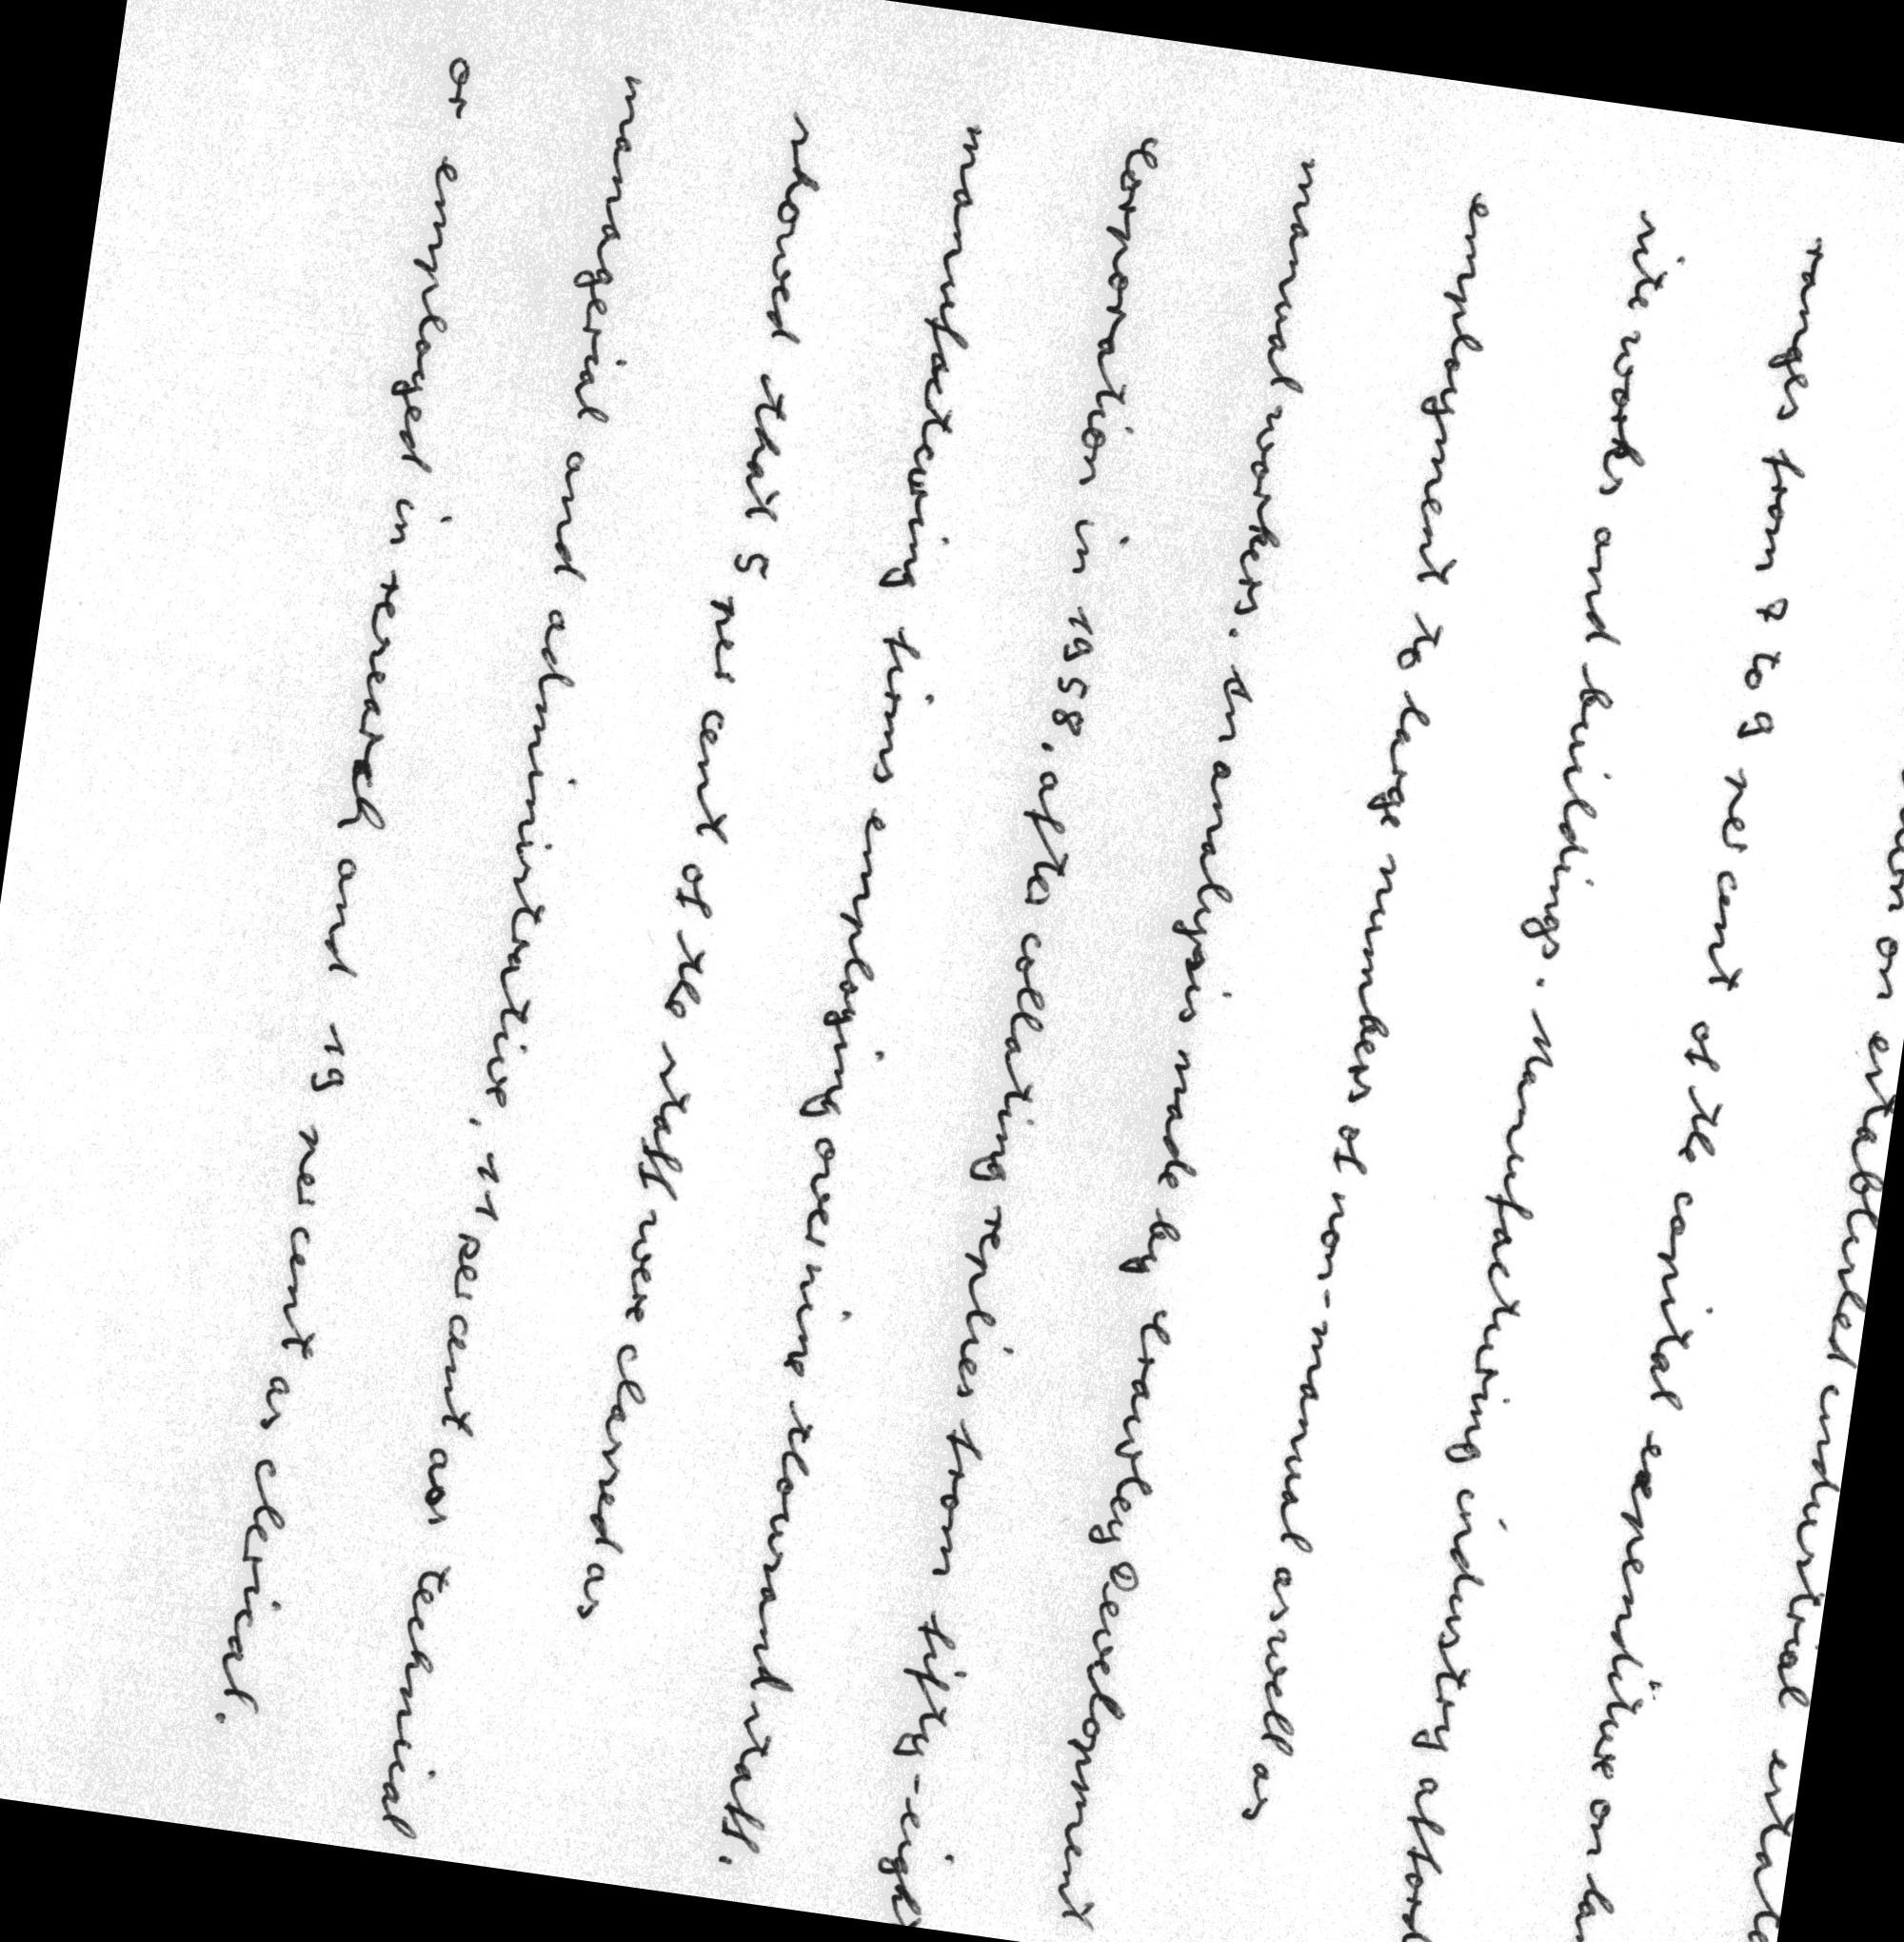 on established industrial
ranges from 7 to 9 per cent of the capital expenditure on
site works and buildings. Manufacturing industry
employment to large numbers of non-manual as well as
manual workers. An analysis made by Crawley Development
Corporation in 1958, after collating replies from fifty-eight
manufacturing firms employing over nine thousand staff,
showed that 5 per cent of the staff were classed as
managerial and administrative, 11 per cent as technical
or employed in research and 19 per cent as clerical.